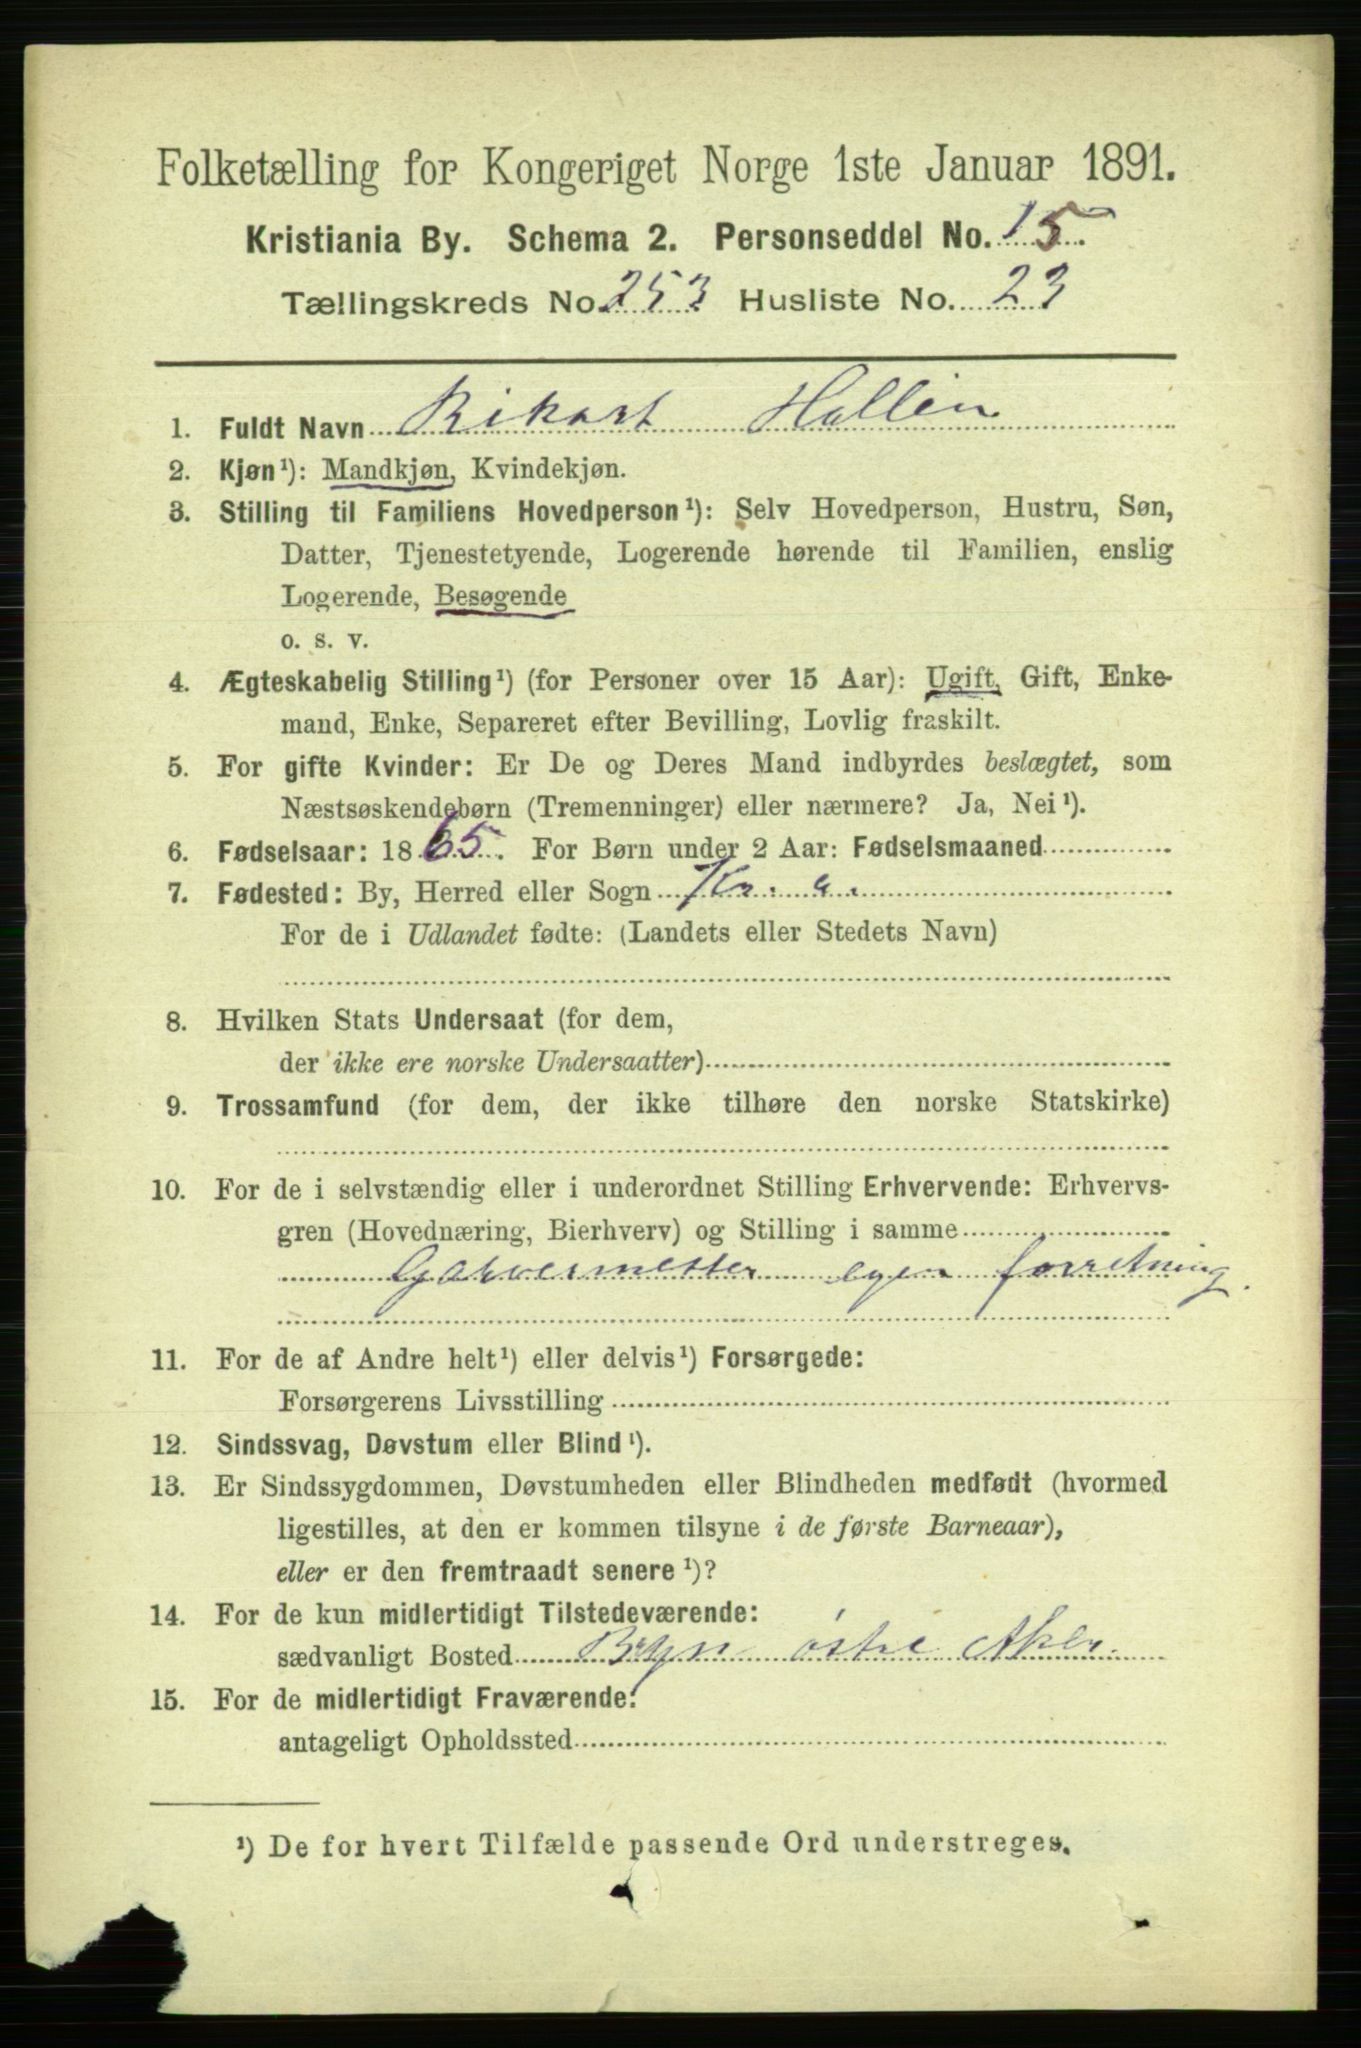 Folketælling for Kongeriget Norge 1ste Januar 1891.
Kristiania By. Schema 2. Personseddel No. 15.
Tællingskreds No. 253 Husliste No. 23
1. Fuldt Navn Rikart Hallén
2. Kjøn¹): Mandkjøn, Kvindekjøn.
3. Stilling til Familiens Hovedperson¹): Selv Hovedperson, Hustru, Søn,
Datter, Tjenestetyende, Logerende hørende til Familien, enslig
Logerende, Besøgende
o. s. v.
4. Ægteskabelig Stilling¹) (for Personer over 15 Aar): Ugift, Gift, Enke-
mand, Enke, Separeret efter Bevilling, Lovlig fraskilt.
5. For gifte Kvinder: Er De og Deres Mand indbyrdes beslægtet, som
Næstsøskendebørn (Tremenninger) eller nærmere? Ja, Nei¹).
6. Fødselsaar: 1865. For Børn under 2 Aar: Fødselsmaaned
7. Fødested: By, Herred eller Sogn Kr. a.
For de i Udlandet fødte: (Landets eller Stedets Navn)
8. Hvilken Stats Undersaat (for dem,
der ikke ere norske Undersaatter)
9. Trossamfund (for dem, der ikke tilhøre den norske Statskirke)
10. For de i selvstændig eller i underordnet Stilling Erhvervende: Erhvervs-
gren (Hovednæring, Bierhverv) og Stilling i samme
Garvermester egen forretning.
11. For de af Andre helt¹) eller delvis¹) Forsørgede:
Forsørgerens Livsstilling
12. Sindssvag, Døvstum eller Blind¹).
13. Er Sindssygdommen, Døvstumheden eller Blindheden medfødt (hvormed
ligestilles, at den er kommen tilsyne i de første Barneaar),
eller er den fremtraadt senere¹)?
14. For de kun midlertidigt Tilstedeværende:
sædvanligt Bosted Bryn østre Aker.
15. For de midlertidigt Fraværende:
antageligt Opholdssted
¹) De for hvert Tilfælde passende Ord understreges.